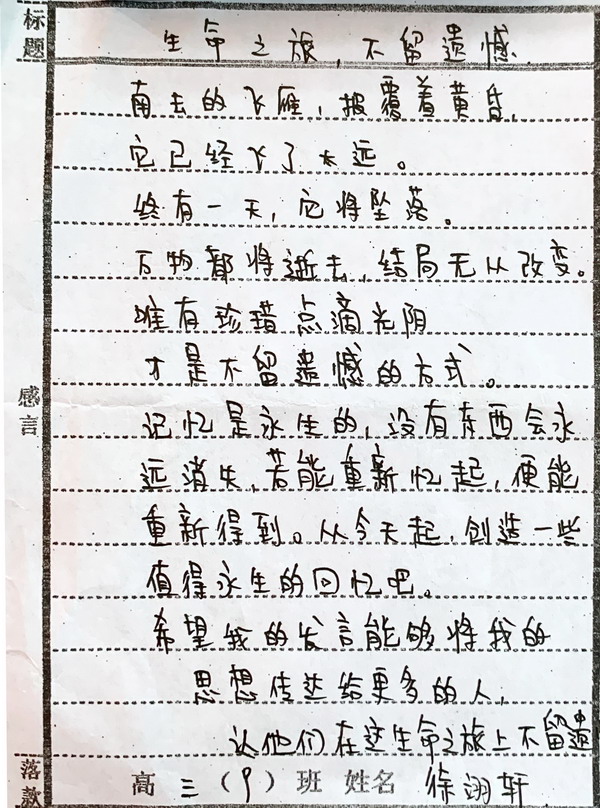 标题
生命之旅，不留遗憾
南去的飞雁，披覆着黄昏，
它已经飞了太远。
终有一天，它将坠落。
万物都将逝去，结局无从改变。
唯有珍惜点滴光阴
才是不留遗憾的方式。
感言
记忆是永生的，没有东西会永
远消失，若能重新忆起，便能
重新得到。从今天起，创造一些
值得永生的回忆吧。
希望我的发言能够将我的
思想传达给更多的人，
让他们在这生命之旅上不留遗
落款
高三（9）班 姓名 徐翊轩